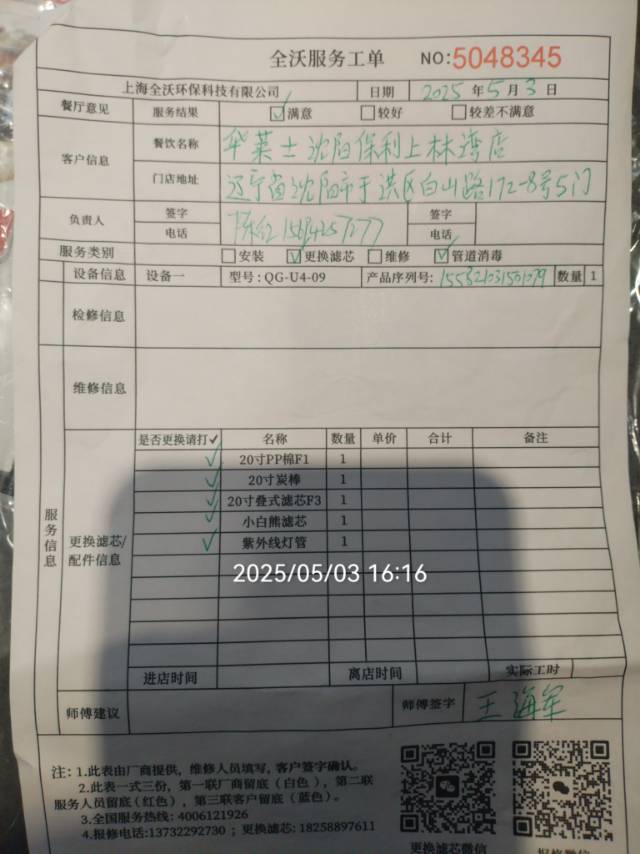 全沃服务工单 NO:5048345
上海全沃环保科技有限公司 日期 2025年5月3日
餐厅意见 服务结果 ☑满意 □较好 □较差不满意
客户信息 餐饮名称 华莱士沈阳保利上林湾店
门店地址 辽宁省沈阳市于洪区白山路172-8号5门
负责人 签字 签字
电话 电话
服务类别 □安装 ☑更换滤芯 □维修 ☑管道消毒
设备信息 设备一 型号:QG-U4-09 产品序列号: 数量 1
检修信息
维修信息
服务信息
更换滤芯/配件信息
是否更换请打✓ 名称 数量 单价 合计 备注
✓ 20寸PP棉F1 1
✓ 20寸炭棒 1
✓ 20寸叠式滤芯F3 1
✓ 小白熊滤芯 1
✓ 紫外线灯管 1
2025/05/03 16:16
进店时间 离店时间 实际工时
师傅建议 师傅签字 王海军
注: 1.此表由厂商提供, 维修人员填写, 客户签字确认。
2.此表一式三份, 第一联厂商留底(白色), 第二联
服务人员留底(红色), 第三联客户留底(蓝色)。
3.全国服务热线: 4006121926
4.报修电话:13732292730 ; 更换滤芯: 18258897611
更换滤芯微信 报修微信